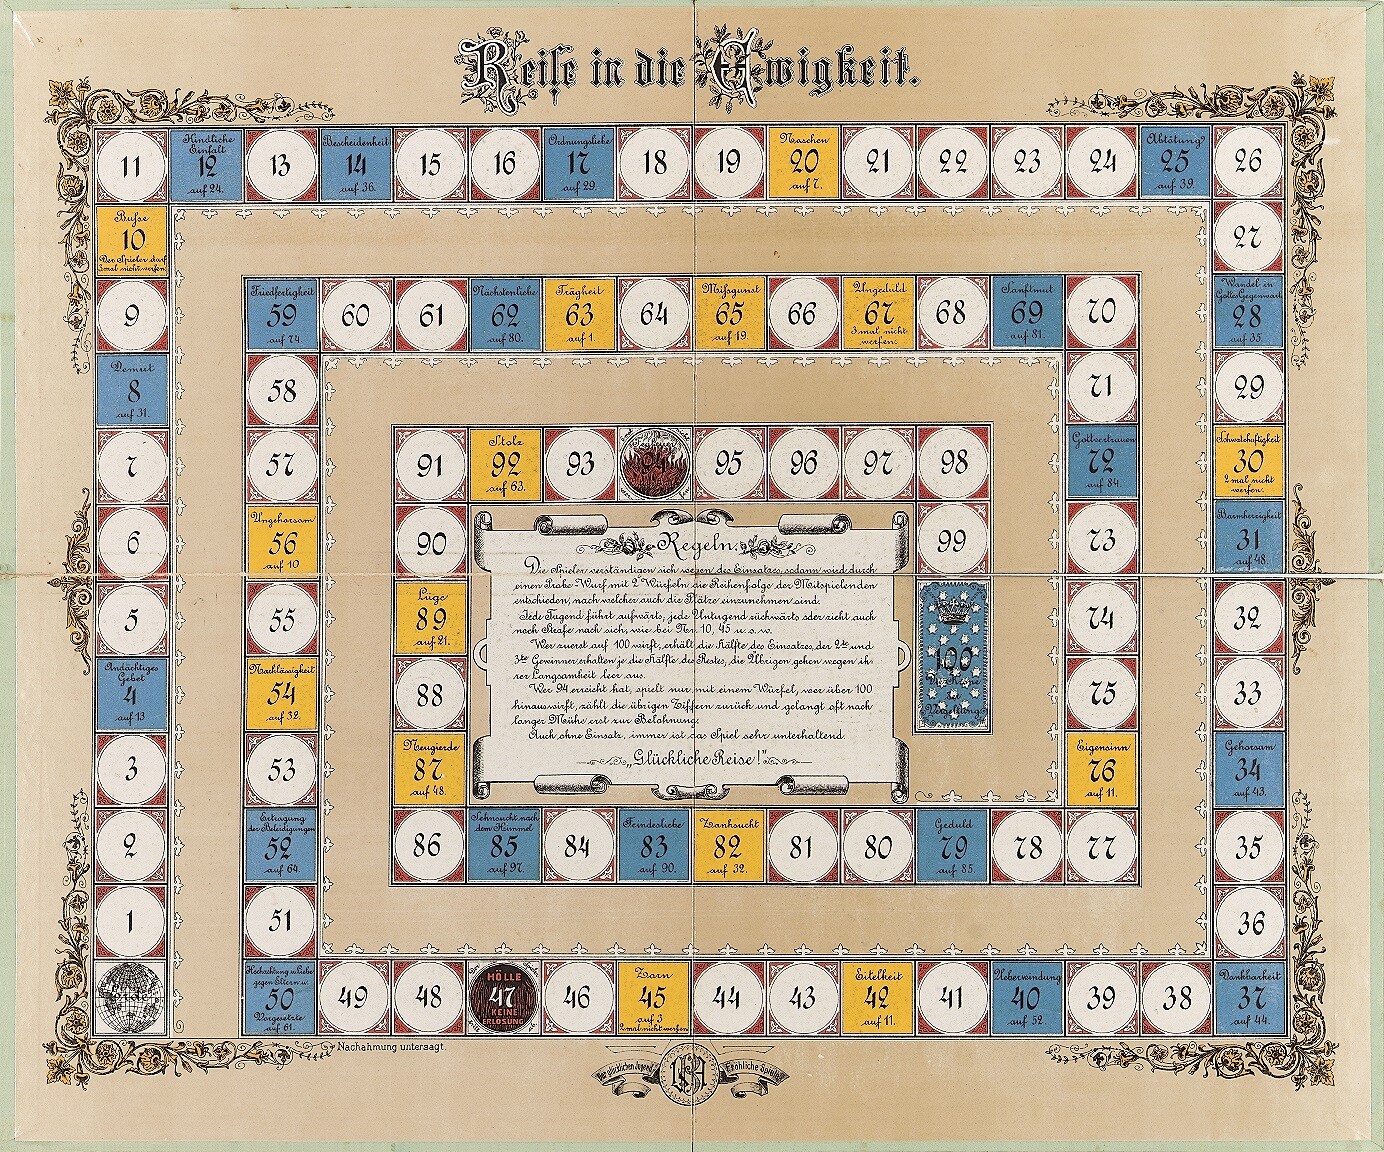 Reise in die Ewigkeit.
11
Kindliche
Einfalt
12
auf 24.
13
Bescheidenheit
14
auf 36.
15
16
Ordnungsliebe
17
auf 29.
18
19
Naschen
20
auf 7.
21
22
23
24
Abtötung
25
auf 39.
26
Buße
10
Der Spieler darf
3mal nicht werfen
27
9
Friedfertigkeit
59
auf 74.
60
61
Nächstenliebe
62
auf 80.
Trägheit
63
auf 1.
64
Mißgunst
65
auf 19.
66
Ungeduld
67
3mal nicht
werfen.
68
Sanftmut
69
auf 81.
70
Wandel in
Gottes Gegenwart
28
auf 35.
Demut
8
auf 31.
58
71
29
7
57
91
Stolz
92
auf 63.
93
94
95
96
97
98
Gottvertrauen
72
auf 84.
Schwatzhaftigkeit
30
2mal nicht
werfen.
6
Ungehorsam
56
auf 10
90
99
73
Barmherzigkeit
31
auf 48.
Regeln.
Die Spieler verständigen sich wegen des Einsatzes, sodann wird durch
einen Probe-Wurf mit 2 Würfeln die Reihenfolge der Mitspielenden
entschieden, nach welcher auch die Plätze einzunehmen sind.
Jede Tugend führt aufwärts, jede Untugend rückwärts oder zieht auch
noch Strafe nach sich, wie bei Nr. 10, 45 u. s. w.
Wer zuerst auf 100 wirft, erhält die Hälfte des Einsatzes, der 2te und
3te Gewinner erhalten je die Hälfte des Restes, die Übrigen gehen wegen ih-
rer Langsamkeit leer aus.
Wer 94 erreicht hat, spielt nur mit einem Würfel, wer über 100
hinauswirft, zählt die übrigen Ziffern zurück und gelangt oft nach
langer Mühe erst zur Belohnung.
Auch ohne Einsatz, immer ist das Spiel sehr unterhaltend.
„Glückliche Reise!"
5
55
Lüge
89
auf 21.
100
Vergeltung
74
32
Andächtiges
Gebet
4
auf 13
Nachlässigkeit
54
auf 32.
88
75
33
3
53
Neugierde
87
auf 48.
Eigensinn
76
auf 11.
Gehorsam
34
auf 43.
2
Ertragung
der Beleidigungen
52
auf 64.
86
Sehnsucht nach
dem Himmel
85
auf 97.
84
Feindesliebe
83
auf 90.
Zanksucht
82
auf 32.
81
80
Geduld
79
auf 85.
78
77
35
1
51
36
Erde
Hochachtung u. Liebe
gegen Eltern u.
50
Vorgesetzte
auf 61.
49
48
HÖLLE
47
KEINE
ERLÖSUNG
46
Zorn
45
auf 3
2mal nicht werfen
44
43
Eitelkeit
42
auf 11.
41
Ueberwindung
40
auf 52.
39
38
Dankbarkeit
37
auf 44.
Nachahmung untersagt.
Fröhliche Spiele